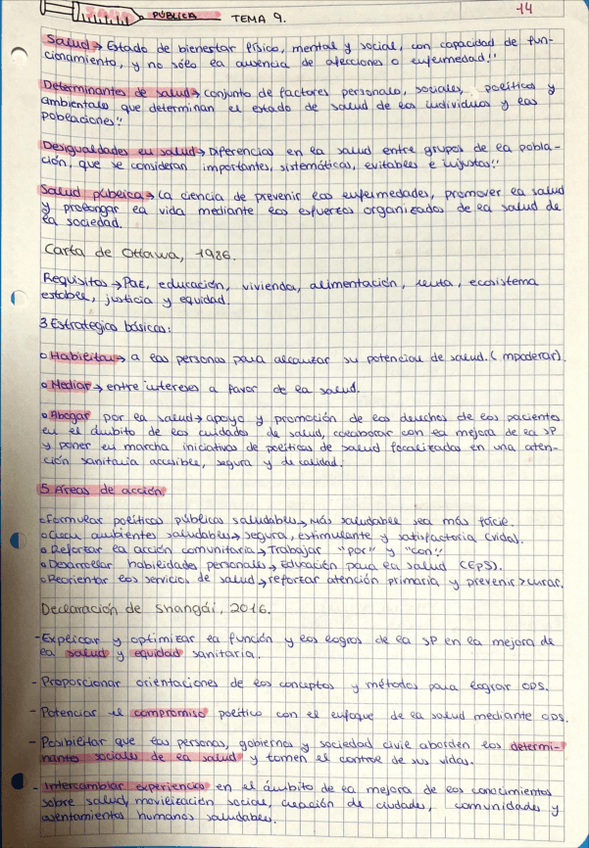 SALUD PÚBLICA TEMA 9. 14
Salud → Estado de bienestar físico, mental y social, con capacidad de fun-
cionamiento, y no sólo la ausencia de afecciones o enfermedad."
Determinantes de salud → conjunto de factores personales, sociales, políticos y
ambientales que determinan el estado de salud de los individuos y las
poblaciones."
Desigualdades en salud → Diferencias en la salud entre grupos de la pobla-
ción, que se consideran importantes, sistemáticas, evitables e injustas."
Salud pública → La ciencia de prevenir las enfermedades, promover la salud
y prolongar la vida mediante los esfuerzos organizados de la salud de
la sociedad.
Carta de Ottawa, 1986.
Requisitos → Paz, educación, vivienda, alimentación, renta, ecosistema
estable, justicia y equidad.
3 Estrategias básicas:
o Habilitar → a las personas para alcanzar su potencial de salud. (mpoderar).
o Mediar → entre intereses a favor de la salud.
o Abogar por la salud → apoyo y promoción de los derechos de los pacientes
en el ámbito de los cuidados de salud, colaborar con la mejora de la SP
y poner en marcha iniciativas de políticas de salud focalizadas en una aten-
ción sanitaria accesible, segura y de calidad.
5 Áreas de acción
o Formular políticas públicas saludables → Más saludable sea más fácil.
o Crear ambientes saludables → segura, estimulante y satisfactoria (vida).
o Reforzar la acción comunitaria → Trabajar "por" y "con".
o Desarrollar habilidades personales → Educación para la salud (EPS).
o Reorientar los servicios de salud → reforzar atención primaria y prevenir > curar.
Declaración de Shangái, 2016.
- Explicar y optimizar la función y los logros de la SP en la mejora de
la salud y equidad sanitaria.
- Proporcionar orientaciones de los conceptos y métodos para lograr ODS.
- Potenciar el compromiso político con el enfoque de la salud mediante ODS.
- Posibilitar que las personas, gobiernos y sociedad civil aborden los determi-
nantes sociales de la salud y tomen el control de sus vidas.
- Intercambiar experiencia en el ámbito de la mejora de los conocimientos
sobre salud, movilización social, creación de ciudades, comunidades y
asentamientos humanos saludables.